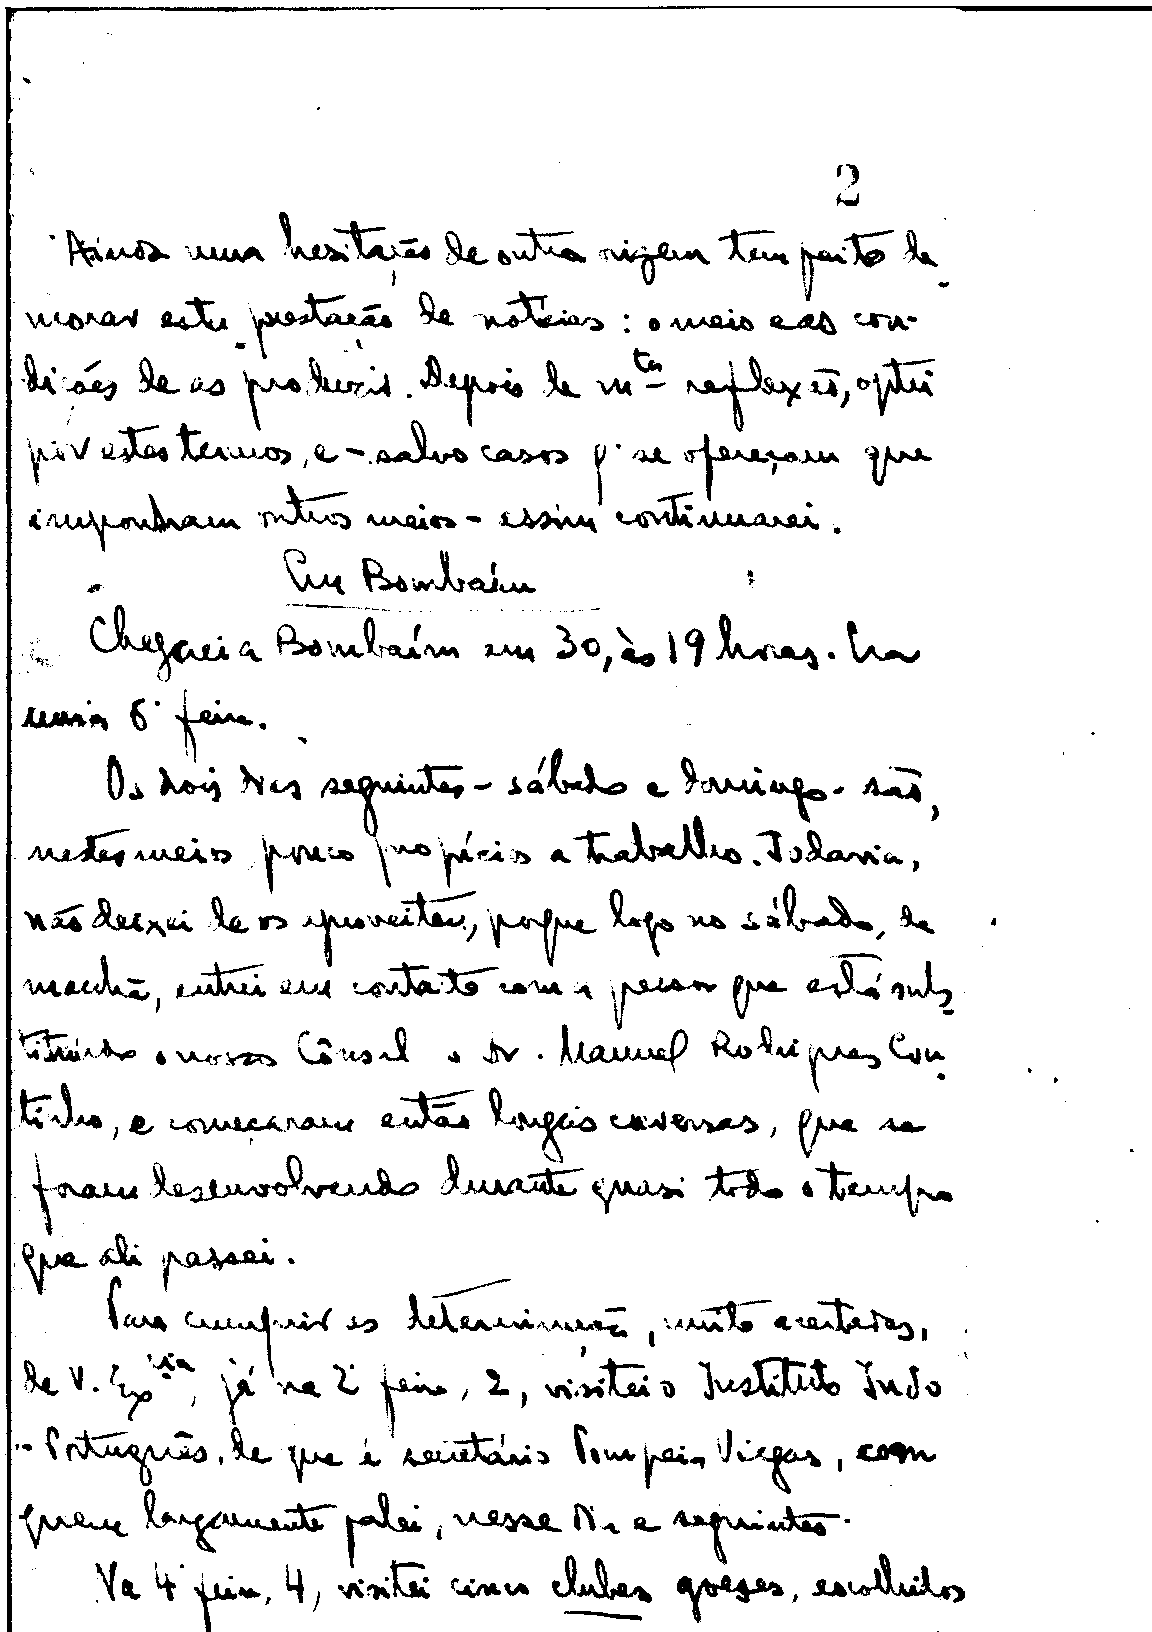 2
Ainda uma hesitação de outra origem tem feito de-
morar esta prestação de notícias: o meio e as con-
dições de as produzir. Depois de m.tas reflexões, optei
por estes termos, e - salvo casos q. se ofereçam que
imponham outros meios - assim continuarei.
Em Bombaím
Cheguei a Bombaím em 30, às 19 horas. Era
uma 6ª feira.
Os dois dias seguintes - sábado e domingo - são,
nestes meios pouco propícios a trabalho. Todavia,
não deixei de os aproveitar, porque logo no sábado, de
manhã, entrei em contato com a pessoa que está subs-
tituindo o nosso Cônsul o Dr. Manuel Rodrigues Cou-
tinho, e começaram então longas conversas, que se
foram desenvolvendo durante quasi todo o tempo
que ali passei.
Para cumprir as determinações, muito acertadas,
de V. Ex.cia, já na 2ª feira, 2, visitei o Instituto Indo
-Português, de que é secretário Pompeia Viegas, com
quem largamente falei, nesse dia e seguintes.
Na 4ª feira, 4, visitei cinco clubes goeses, escolhidos